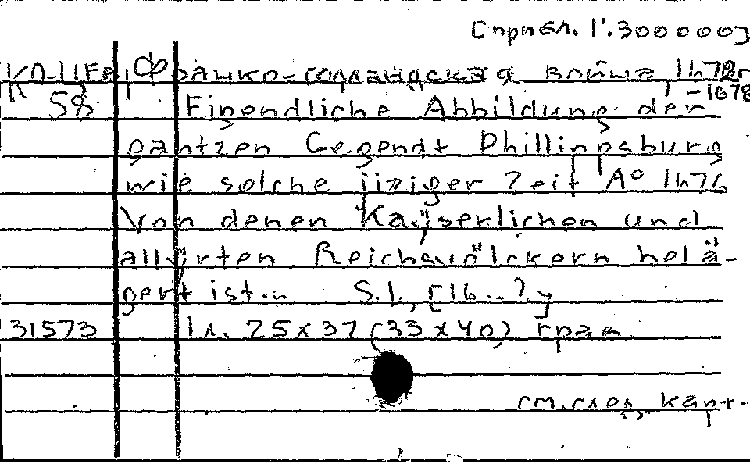 [Прибл. 1:300000]
КО-ЦЕв Франко-голландская война 1672-
58 -1678
Eigendliche Abbildung der
gantzen Gegendt Phillippsburg
wie solche iiziger Zeit A° 1676
Von denen Kaÿserlichen und
allyrten Reichsvölckern belä-
gert ist. S.l., [16..?]
31573 1 л. 25x37 (33x40) грав.
см. след. карт.